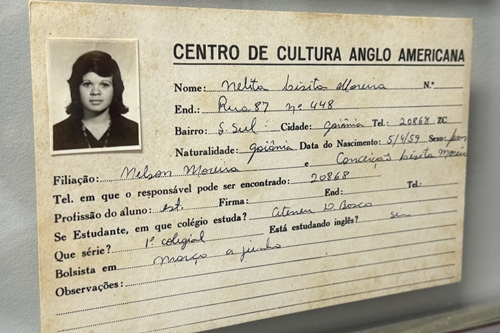 CENTRO DE CULTURA ANGLO AMERICANA
Nome: Nelita Lisita Moreira N.º
End.: Rua 87 nº 448
Bairro: S. Sul Cidade: Goiânia Tel.: 20868 ZC
Naturalidade: Goiânia Data do Nascimento: 5/4/59 Sexo: fem
Filiação: Nelson Moreira e Conceição Lisita Moreira
Tel. em que o responsável pode ser encontrado: 20868
Profissão do aluno: est. Firma: End: Tel:
Se Estudante, em que colégio estuda? Ateneu D Bosco
Que série? 1º colegial Está estudando inglês? sim
Bolsista em março a junho
Observações: